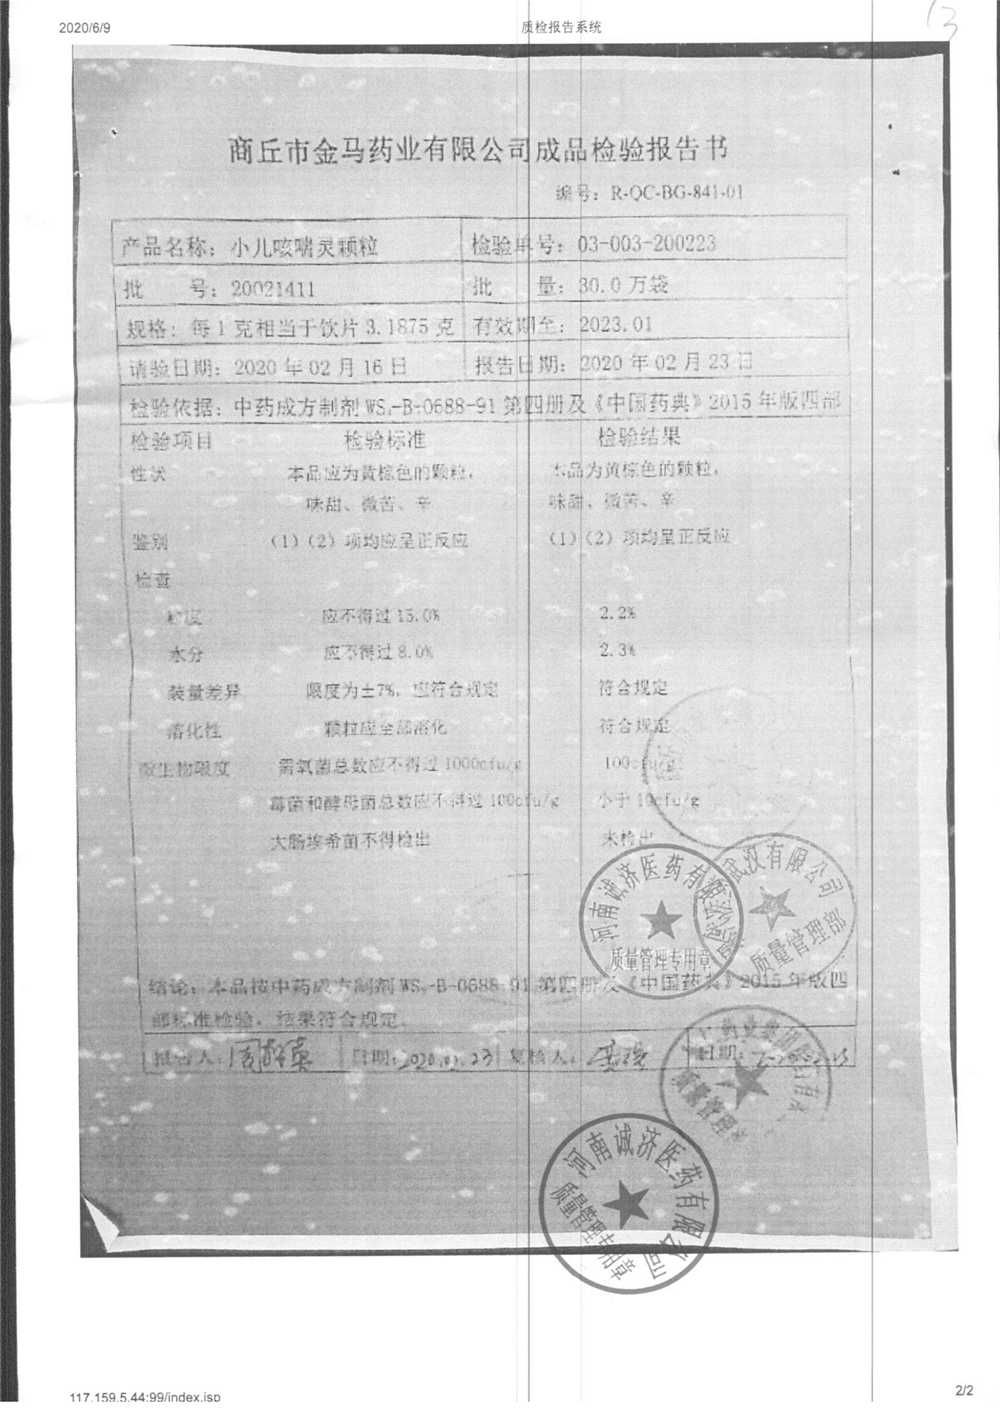 2020/6/9
质检报告系统
13
商丘市金马药业有限公司成品检验报告书
编号：R-QC-BG-841-01
产品名称：小儿咳喘灵颗粒 检验单号：03-003-200223
批 号：20021411 批 量：30.0 万袋
规格：每 1 克相当于饮片 3.1875 克 有效期至：2023.01
请验日期：2020 年 02 月 16 日 报告日期：2020 年 02 月 23 日
检验依据：中药成方制剂 WS₃-B-0688-91 第四册及《中国药典》2015 年版四部
检验项目 检验标准 检验结果
性状 本品应为黄棕色的颗粒， 本品为黄棕色的颗粒，
味甜、微苦、辛 味甜、微苦、辛
鉴别 （1）（2）项均应呈正反应 （1）（2）项均呈正反应
检查
粒度 应不得过 15.0% 2.2%
水分 应不得过 8.0% 2.3%
装量差异 限度为±7%，应符合规定 符合规定
溶化性 颗粒应全部溶化 符合规定
微生物限度 需氧菌总数应不得过 1000cfu/g 100cfu/g
霉菌和酵母菌总数应不得过 100cfu/g 小于 10cfu/g
大肠埃希菌不得检出 未检出
河南诚济医药有限
质量管理专用章
武汉有限公司
质量管理部
结论：本品按中药成方制剂 WS₃-B-0688-91 第四册及《中国药典》2015 年版四
部标准检验，结果符合规定。
报告人： 日期：2020.02.23 复核人： 日期：
质量管理
河南诚济医药有限公司
质量管理专用章
117.159.5.44:99/index.jsp
2/2